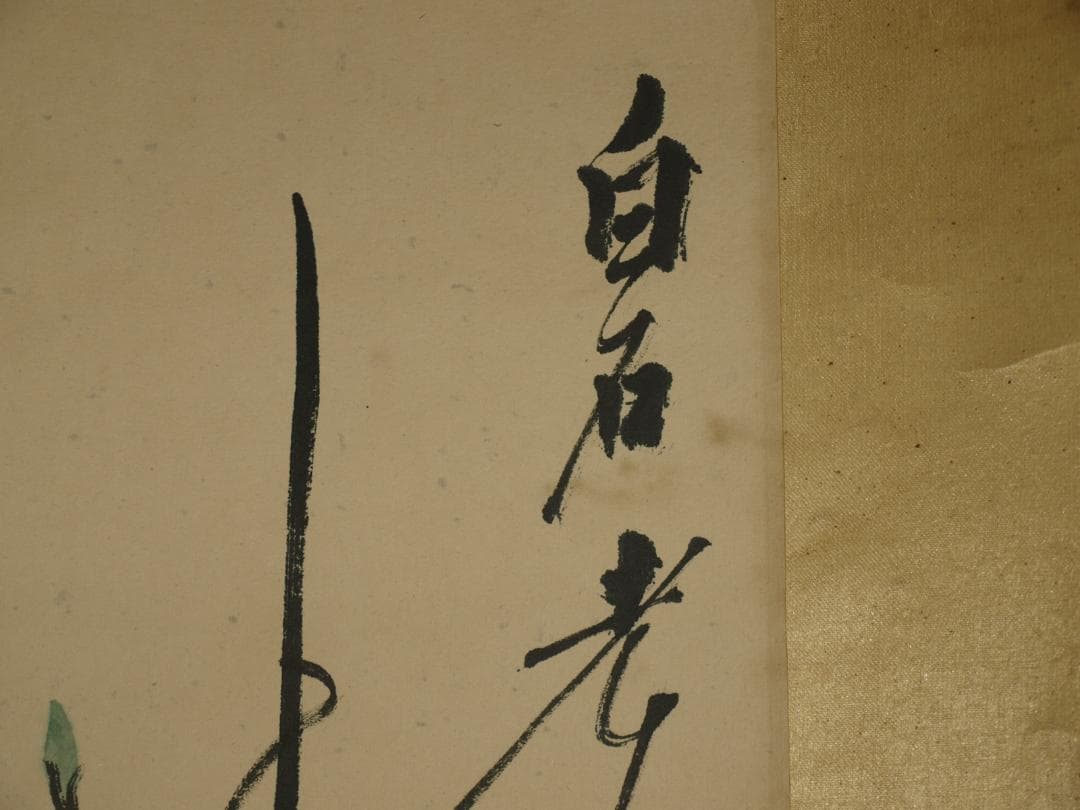 白石老